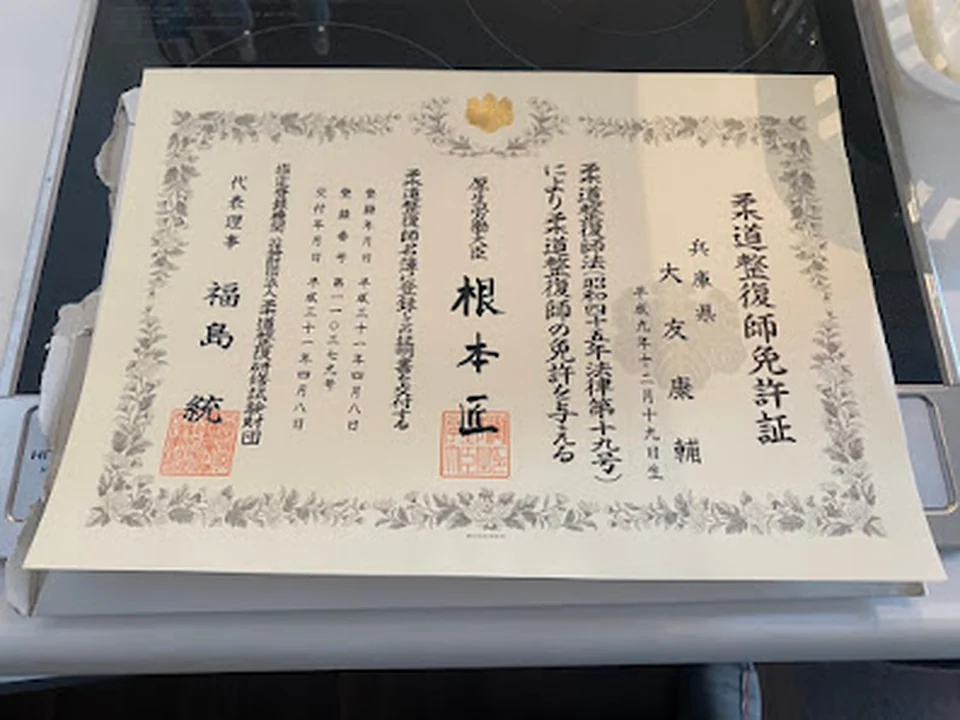 柔道整復師免許証
兵庫県
大友康輔
平成九年十二月十九日生
柔道整復師法(昭和四十五年法律第十九号)
により柔道整復師の免許を与える
厚生労働大臣 根本匠
柔道整復師名簿に登録し名証明書を交付する
登録年月日 平成三十一年四月八日
登録番号 第一一〇三七九号
交付年月日 平成三十一年四月八日
指定登録機関 公益財団法人柔道整復研修試験財団
代表理事 福島統